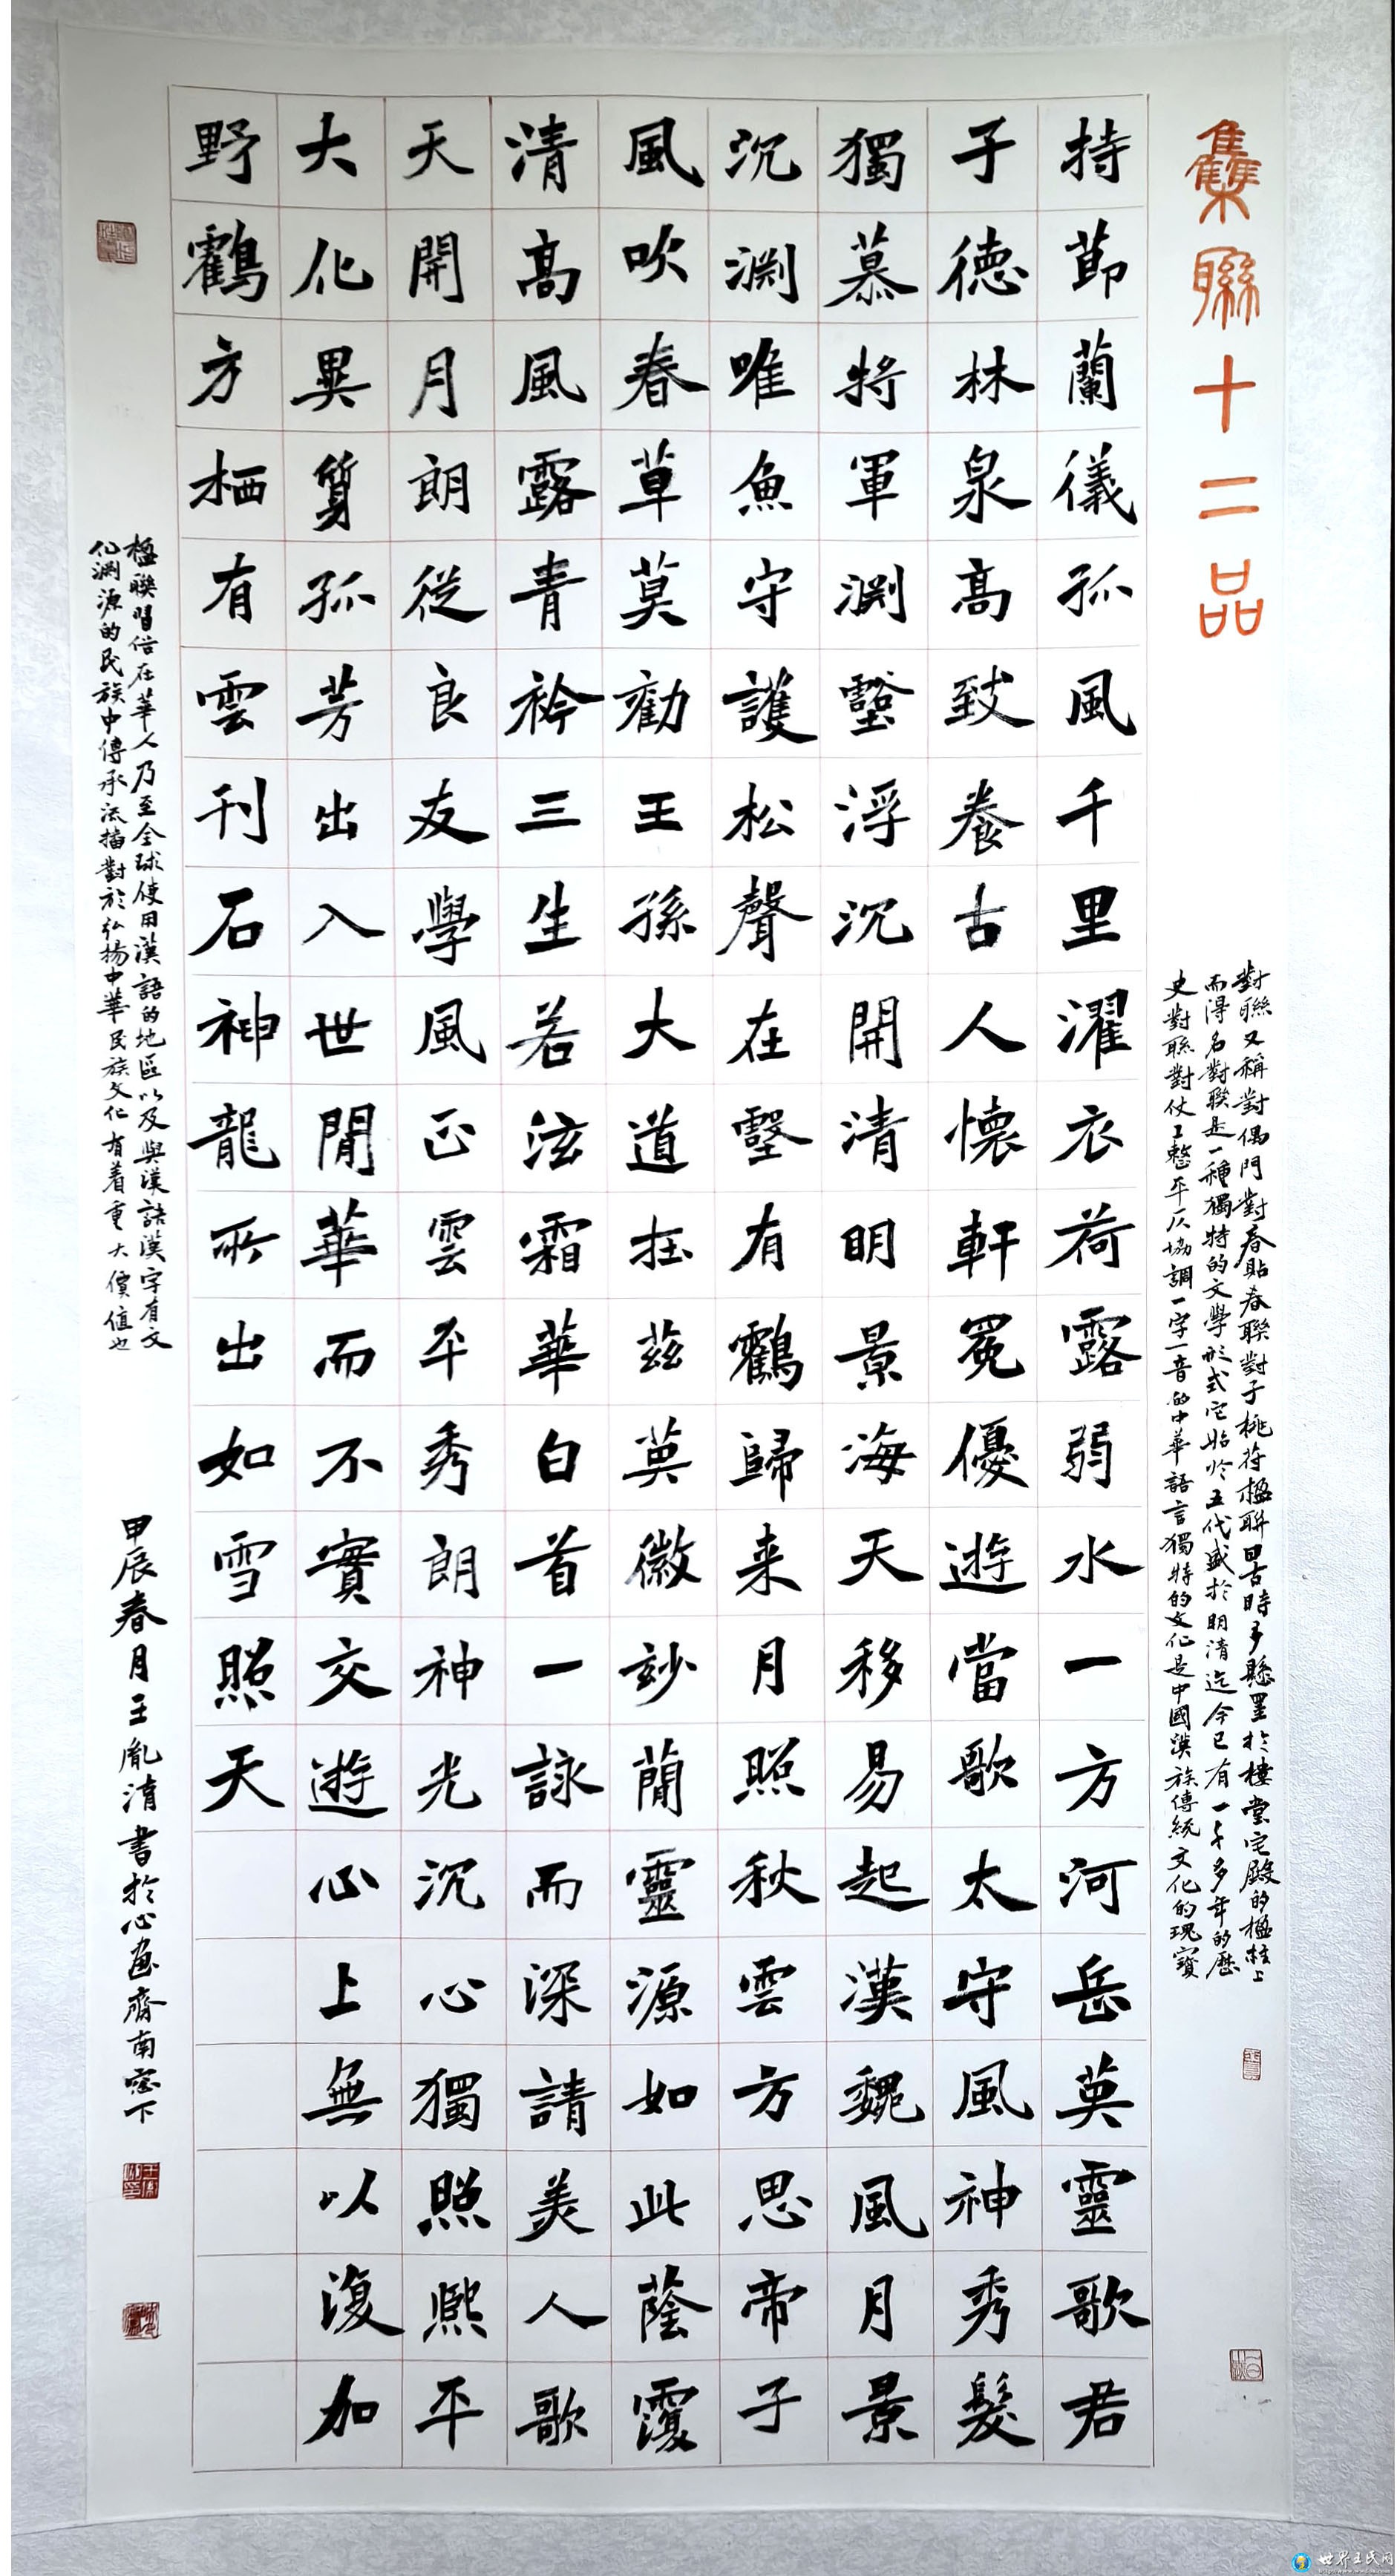 雧聯十二品
對聯又稱對偶門對春貼春聯對子桃符楹聯因古時多懸置於樓堂宅殿的楹柱上
而得名對聯是一種獨特的文學形式它始於五代盛於明清迄今已有一千多年的歷
史對聯對仗工整平仄協調一字一音的中華語言獨特的文化是中國漢族傳統文化的瑰寶
持節蘭儀孤風千里濯衣荷露弱水一方河岳英靈歌君
子德林泉高致養古人懷軒冕優遊當歌太守風神秀髮
獨慕將軍淵壑浮沉開清明景海天移易起漢魏風月景
沉淵唯魚守護松聲在壑有鶴歸来月照秋雲方思帝子
風吹春草莫勸王孫大道在茲英徽妙蕳靈源如此蔭
清高風露青衿三生若泫霜華白首一詠而深請美人歌
天開月朗從良友學風正雲平秀朗神光沉心獨照熙平
大化異質孤芳出入世閒華而不實交遊心上無以復加
野鶴方栖有雲刊石神龍所出如雪照天
楹聯習俗在華人乃至全球使用漢語的地區以及與漢語漢字有文
化淵源的民族中傳承流播對於弘揚中華民族文化有着重大價值也
甲辰春月王胤清書於心画齋南窗下
世界王氏网